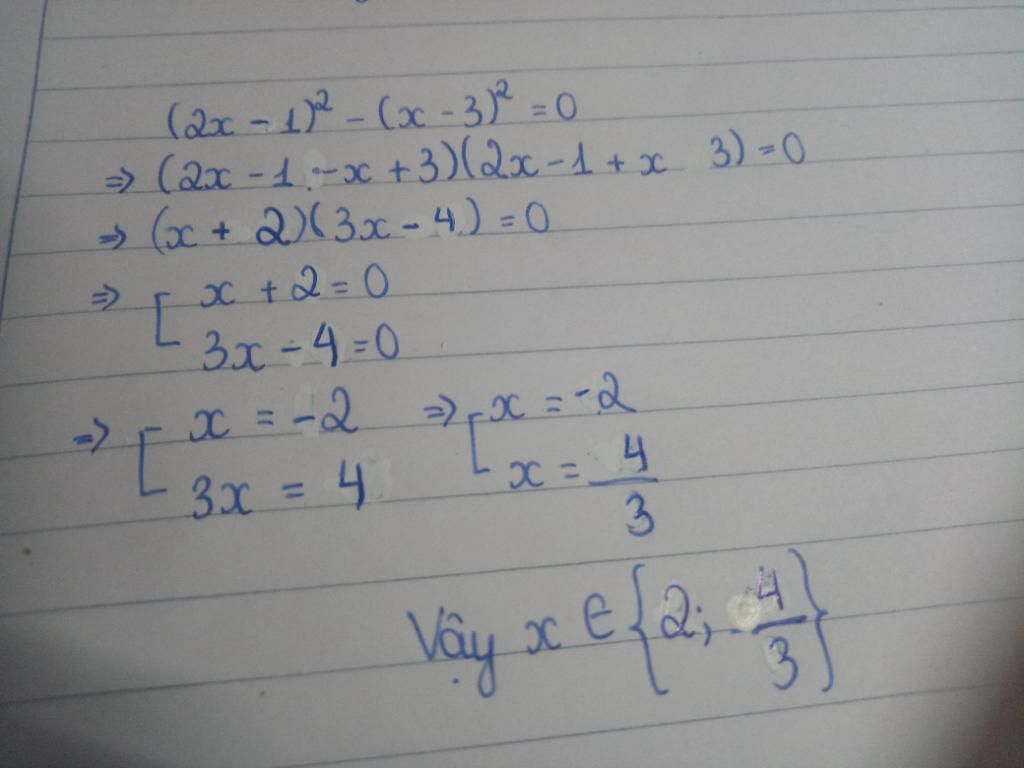 (2x - 1)² - (x - 3)² = 0
⇒ (2x - 1 - x + 3)(2x - 1 + x 3) = 0
⇒ (x + 2)(3x - 4) = 0
⇒ [ x + 2 = 0
3x - 4 = 0
⇒ [ x = -2 ⇒ [ x = -2
3x = 4 x = 4/3
Vậy x ∈ {2; 4/3}